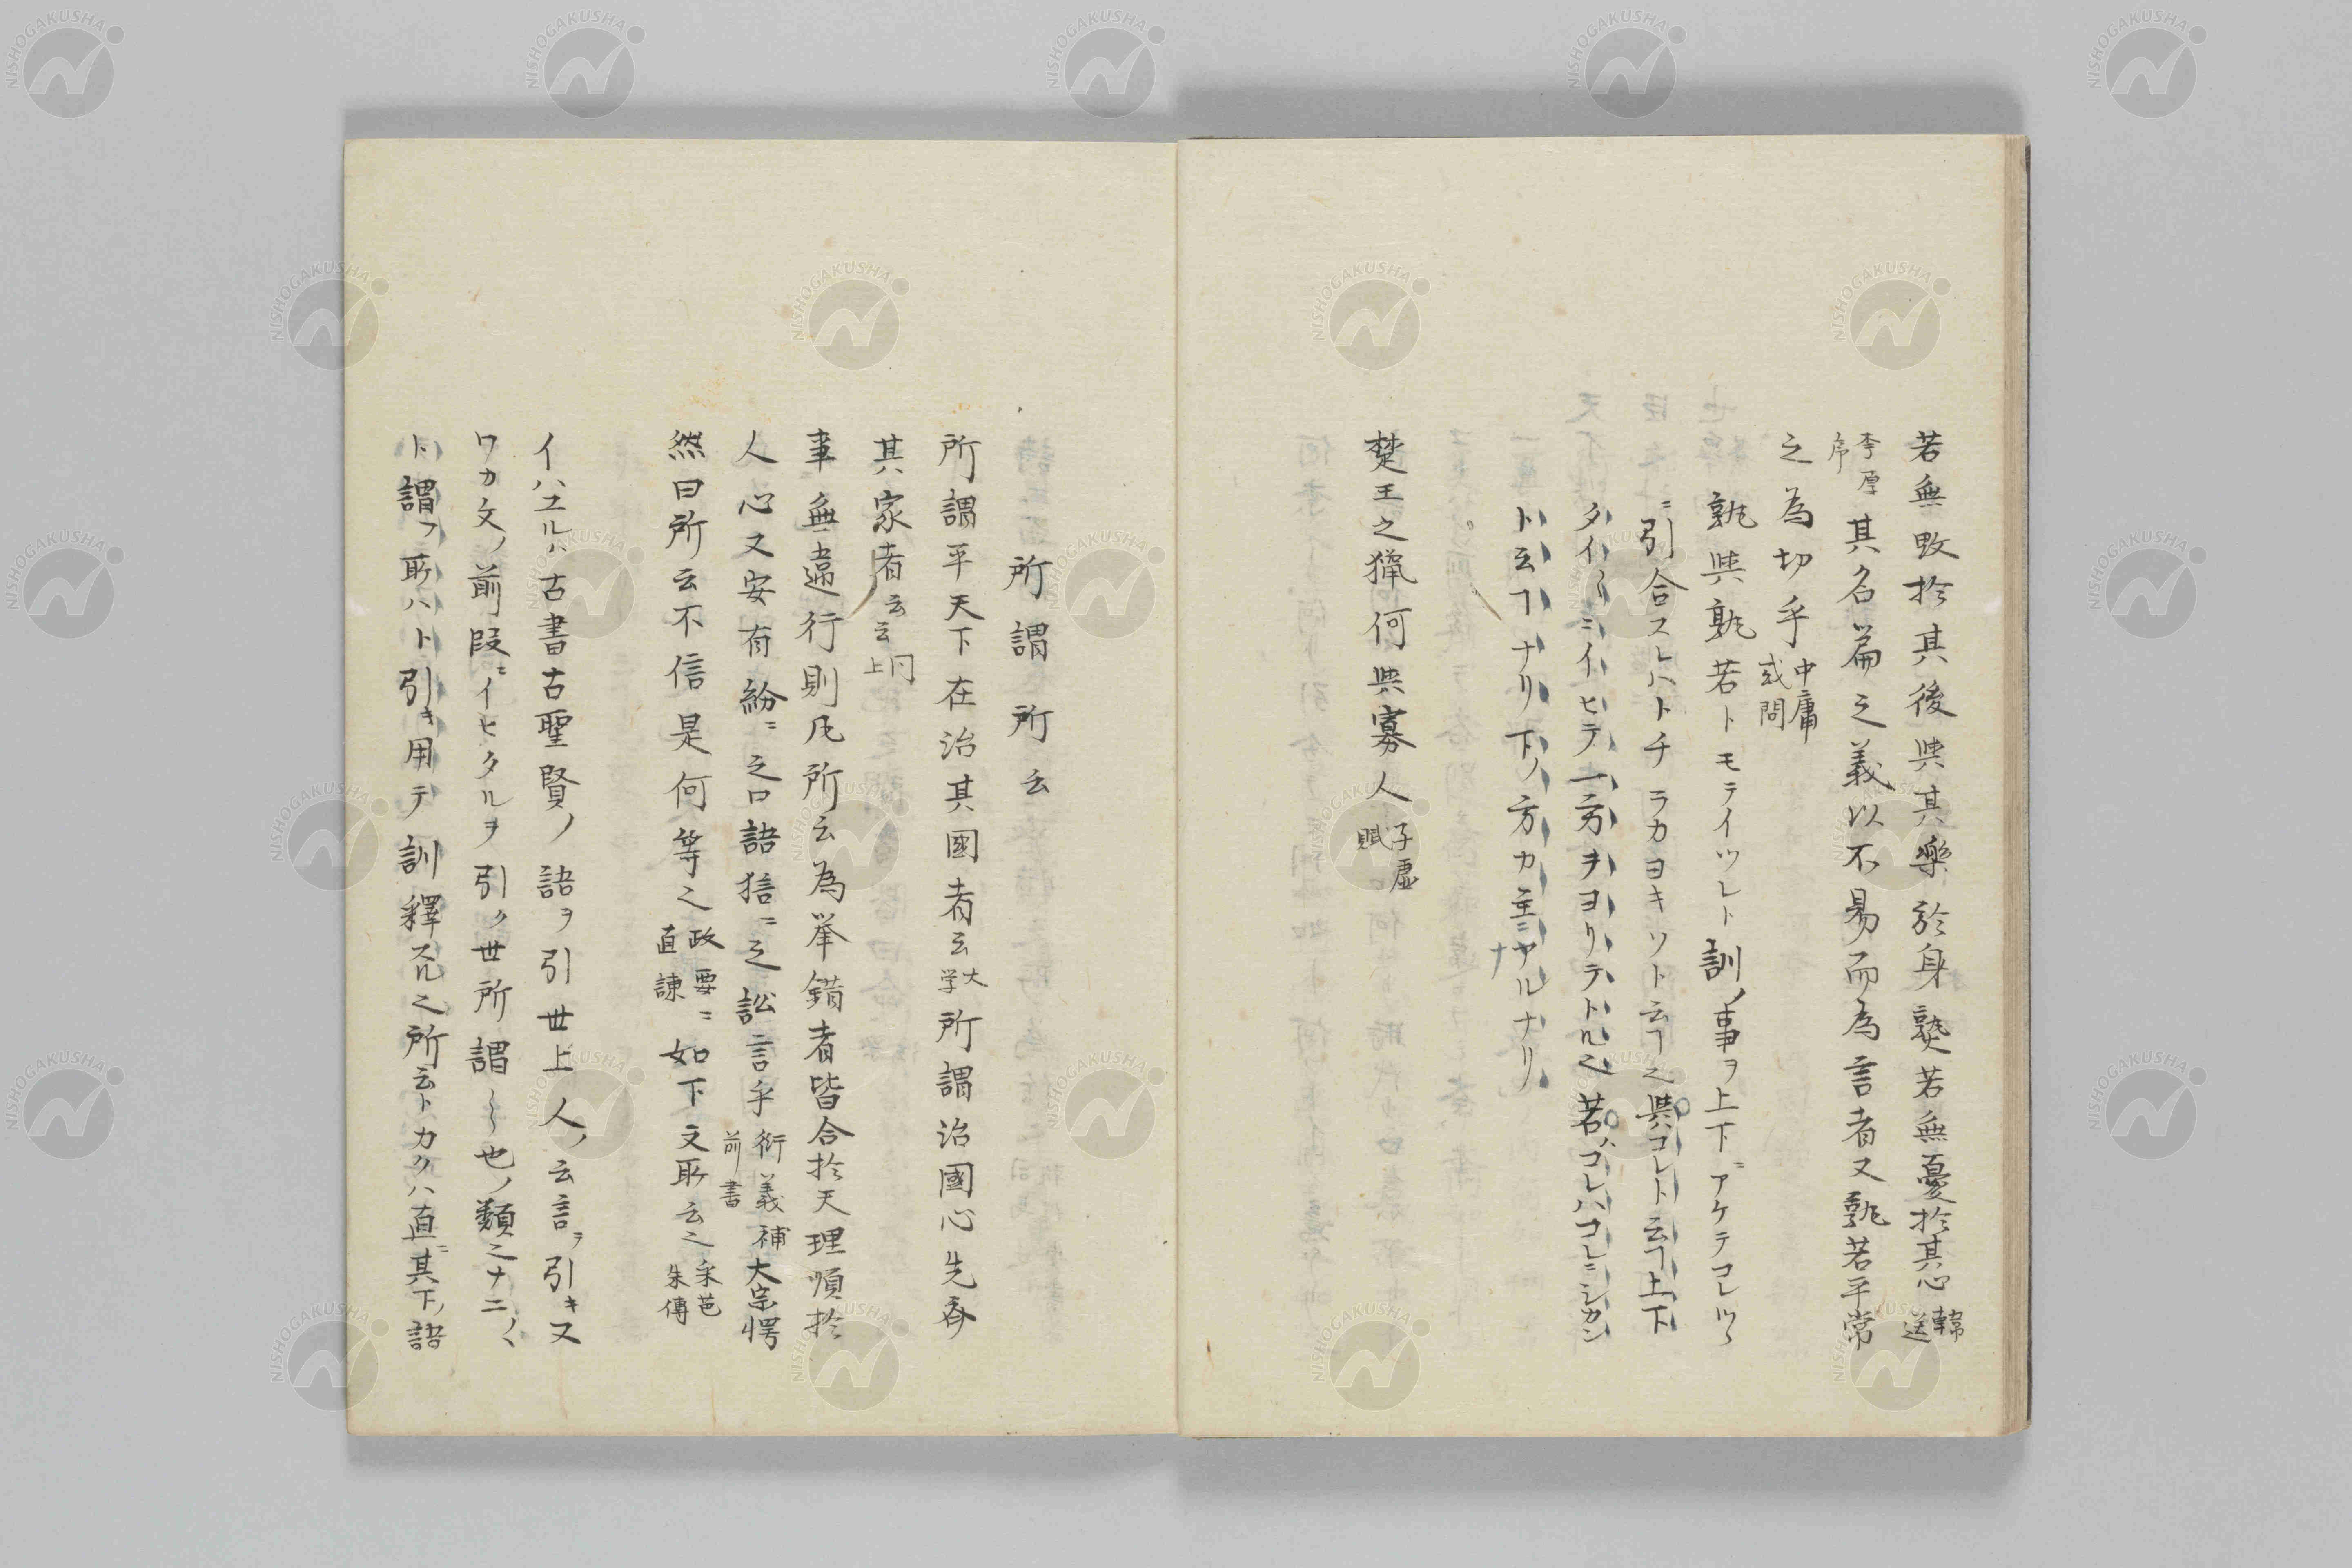 若無毀於其後與其樂於身孰若無憂於其心韓送
李厚序其名篇之義以不易而為言者又孰若平常
之為切乎中庸或問
孰與孰若トモテイツレト訓ノ事ヲ上下ニアケテコレツヽ
ニ引合スレハトチラカヨキソト云ヿ之與コレト云ヿ上下
タイ〳〵ニイヒテ一方ヲヨリテトル之若ハコレハコレニシカン
ト云ヿナリ下ノ方カ主ニナルナリ
楚王之獵何與寡人子虛賦
所謂所云
所謂平天下在治其國者云大学所謂治國心先齊
其家者云云同上
事無違行則凡所云為举錯者皆合於天理順於
人心又安有紛〻之口語狺〻之訟言乎衍義補前書大宗愕
然曰所云不信是何等之政要直諌〻如下文所云之采芑朱傳
イハユルハ古書古聖賢ノ語ヲ引世上人ノ云言ヲ引キ又
ワカ文ノ前段ニイヒタルヲ引ク世所謂〳〵也ノ類之ナニノ〳〵
ト謂フ所ハト引キ用テ訓釋スル之所云トカクハ直ニ其下ノ語